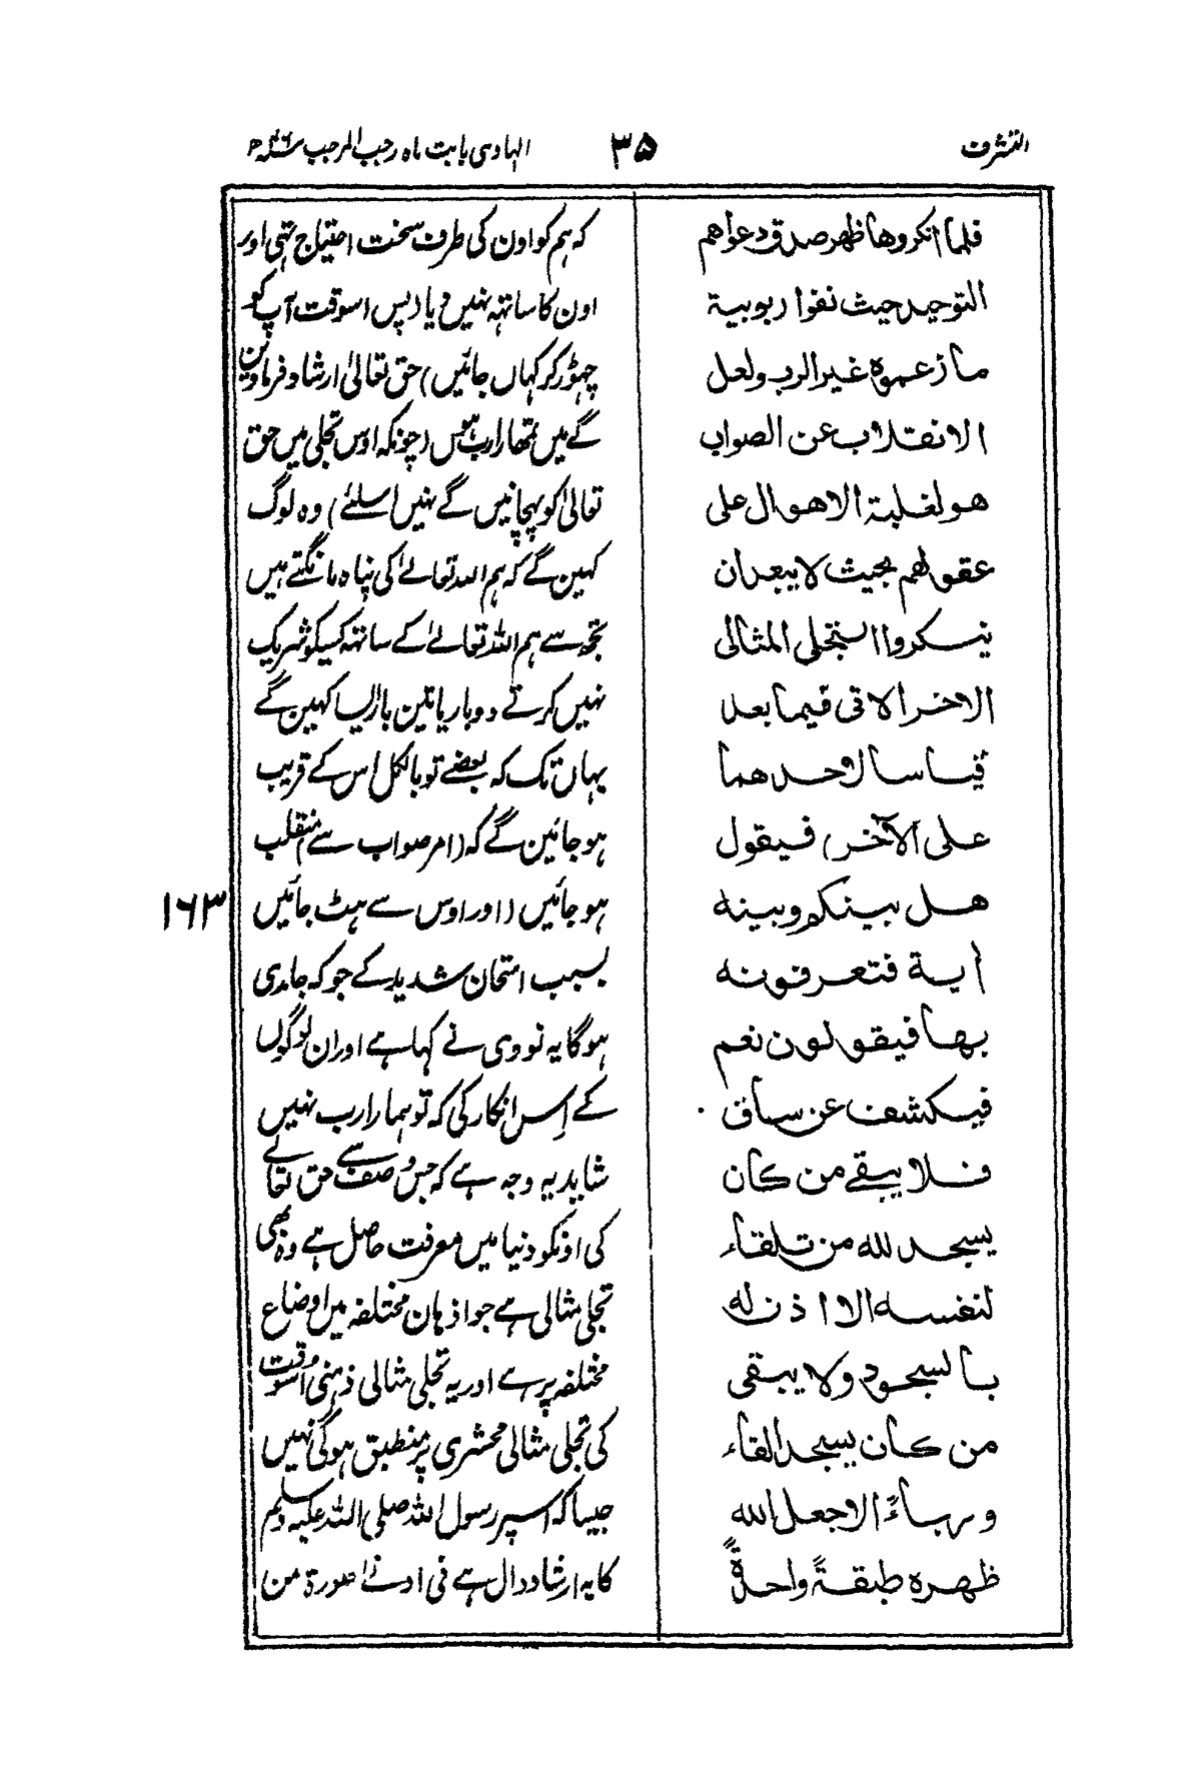 التشرف
۳۵
الہادی بابت ماہ رجب المرجب
فلما انكروها ظهر صدق دعواهم
التوحيد حيث نفوا ربوبية
ما زعموه غير الرب ولعل
الانقلاب عن الصواب
هو لغلبة الاهوال على
عقولهم بحيث لا يبعد ان
ينكروا التجلى المثالى
الاخر الاتى فيما بعد
قياسا لاحدهما
على الآخر) فيقول
هل بينكم وبينه
أية فتعرفونه
بها فيقولون نعم
فيكشف عن ساق
فلا يبقے من كان
يسجد لله من تلقاء
لنفسه الا اذن له
بالسجود ولا يبقى
من كان يسجد القاء
ورياءً الا جعل الله
ظهره طبقةً واحدةً
کہ ہم کو اون کی طرف سخت احتیاج تہی اور
اون کا ساتہہ نہیں دیا (پس اسوقت آپ کو
چہوڑ کر کہاں جائیں) حق تعالیٰ ارشاد فرماوین
گے میں تمھارا رب ہوں (چونکہ اوس تجلی میں حق
تعالیٰ کو پہچانیں گے نہیں اسلئے) وہ لوگ
کہین گے کہ ہم اللہ تعالےٰ کی پناہ مانگتے ہیں
تجھ سے ہم اللہ تعالےٰ کے ساتہہ کسیکو شریک
نہیں کرتے دوبار یا تین بار ایسا کہین گے
یہاں تک کہ بعضے تو بالکل اس کے قریب
ہو جائین گے کہ (امر صواب سے) منقلب
ہو جائیں (اور اوس سے ہٹ جائیں
۱۶۳
بسبب امتحان شدید کے جو کہ جاری
ہوگا یہ نووی نے کہا ہے اور ان لوگوں
کے اِس انکار کی کہ تو ہمارا رب نہیں
شاید یہ وجہ ہے کہ جس وصف سے حق تعالے
کی اونکو دنیا میں معرفت حاصل ہے وہ بھی
تجلی مثالی ہے جو اذہان مختلفہ میں اوضاع
مختلفہ پر ہے اور یہ تجلی مثالی ذہنی اسوقت
کی تجلی مثالی محشری پر منطبق ہوگی نہیں
جیسا کہ اسپر رسول اللہ صلی اللہ علیہ وسلم
کا یہ ارشاد دال ہے فی ادنےٰ صورۃ من